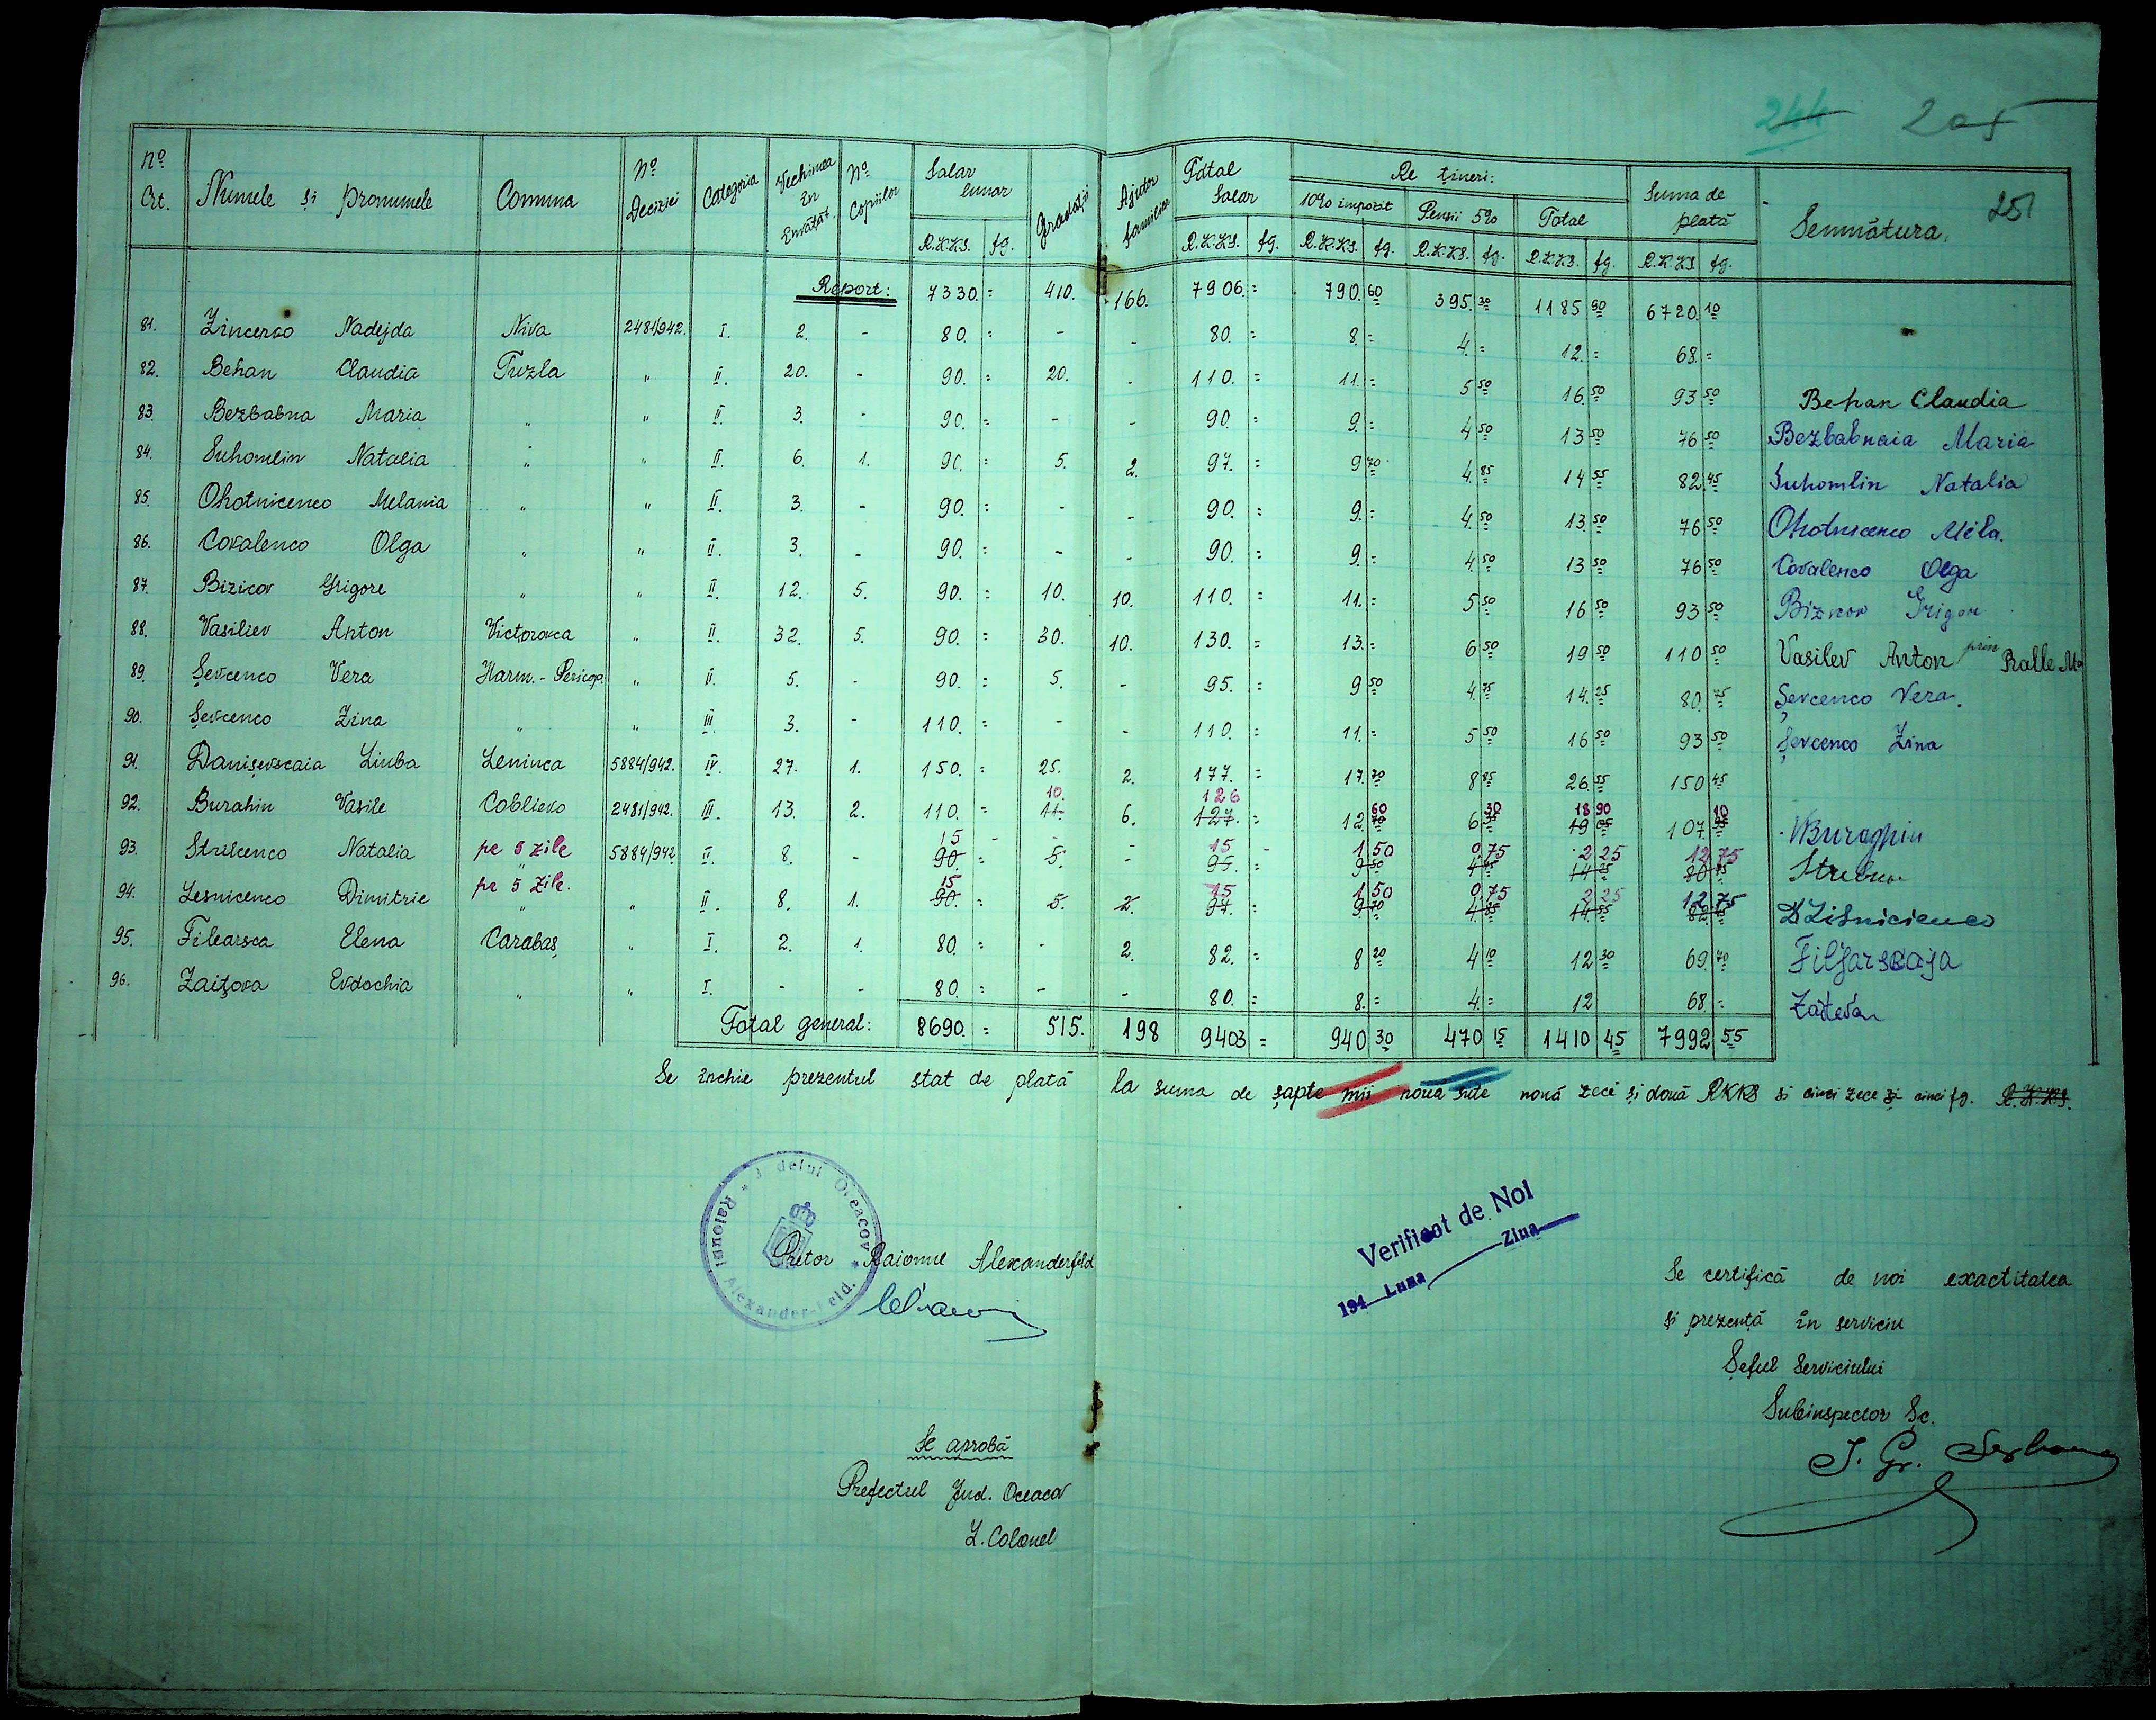 244 205
251
Nº Crt. Numele și pronumele Comuna Nº Deciziei Categoria Vechimea în Învățăt. Nº Copiilor Salar lunar Gradații Ajutor familiar Total Salar Re țineri: Suma de plată Semnătura.
10% impozit Pensii 5% Total
R.K.K.S. fg. R.K.K.S. fg. R.K.K.S. fg. R.K.K.S. fg. R.K.K.S. fg. R.K.K.S fg.
Report: 7330. = 410. 166. 7906. = 790. 60 395. 30 1185 90 6720. 10
81. Zincenco Nadejda Niva 2481/942. I. 2. - 80. = - - 80. = 8. = 4. = 12. = 68. =
82. Behan Claudia Tuzla " II. 20. - 90. = 20. - 110. = 11. = 5 50 16. 50 93 50 Behan Claudia
83. Bezbabna Maria " " II. 3. - 90. = - - 90. = 9. = 4 50 13 50 76 50 Bezbabnaia Maria
84. Suhomlin Natalia " " II. 6. 1. 90. = 5. 2. 97. = 9 70 4. 85 14 55 82. 45 Suhomlin Natalia
85. Ohotnicenco Melania " " II. 3. - 90. = - - 90. = 9. = 4. 50 13. 50 76 50 Ohotnicenco Mela.
86. Covalenco Olga " " II. 3. - 90. = - - 90. = 9. = 4. 50 13 50 76 50 Covalenco Olga
87. Bizicov Grigore " " II. 12. 5. 90. = 10. 10. 110. = 11. = 5 50 16 50 93 50 Biznov Grigore
88. Vasiliev Anton Victorovca " II. 32. 5. 90. = 30. 10. 130. = 13. = 6 50 19 50 110 50 Vasilev Anton prin Ralle Ma
89. Șevcenco Vera Harm. - Pericop. " II. 5. - 90. = 5. - 95. = 9 50 4. 75 14. 25 80. 75 Șevcenco Vera.
90. Șevcenco Zina " " III. 3. - 110. = - - 110. = 11. = 5 50 16 50 93 50 Șevcenco Zina
91. Danișevscaia Liuba Leninca 5884/942. IV. 27. 1. 150. = 25. 2. 177. = 17. 70 8 85 26. 55 150 45
10. 126 60 30 18 90 10
92. Burahin Vasile Coblievo 2481/942. III. 13. 2. 110. = 11. 6. 127. = 12 70 6 35 19 05 107. Buraghin
15 - - 15 - 1 50 0 75 2 25 12 75
93. Strilcenco Natalia pe 5 zile " 5884/942 II. 8. - 90. = 5. - 95. = 9 50 4 75 14 25 80 75
15 15 1 50 0 75 2 25 12 75
94. Lesnicenco Dimitrie pe 5 zile. " " II. 8. 1. 90. = 5. 2. 97. = 9. 70 4 85 14 55 82 45 D Lisnicienco
95. Filearsca Elena Carabaș " I. 2. 1. 80. = - 2. 82. = 8 20 4 10 12 30 69. 70 Filjarscaja
96. Zaițova Evdochia " " I. - - 80. = - - 80. = 8. = 4. = 12 68 =
Total general: 8690. = 515. 198 9403 = 940 30 470 15 1410 45 7992 55
Se închie prezentul stat de plată la suma de șapte mii nouă sute nouă zeci și două RKKS și cinci zece și cinci fg. R.K.K.S.
Raionul Alexander-Feld. * Județul Oceacov *
Pretor Raionul Alexanderfeld
Verificat de Noi
194 Luna Ziua
Se certifică de noi exactitatea
și prezență în serviciu
Șeful Serviciului
Subinspector Șc.
Se aprobă
Prefectul Jud. Oceacov
L. Colonel